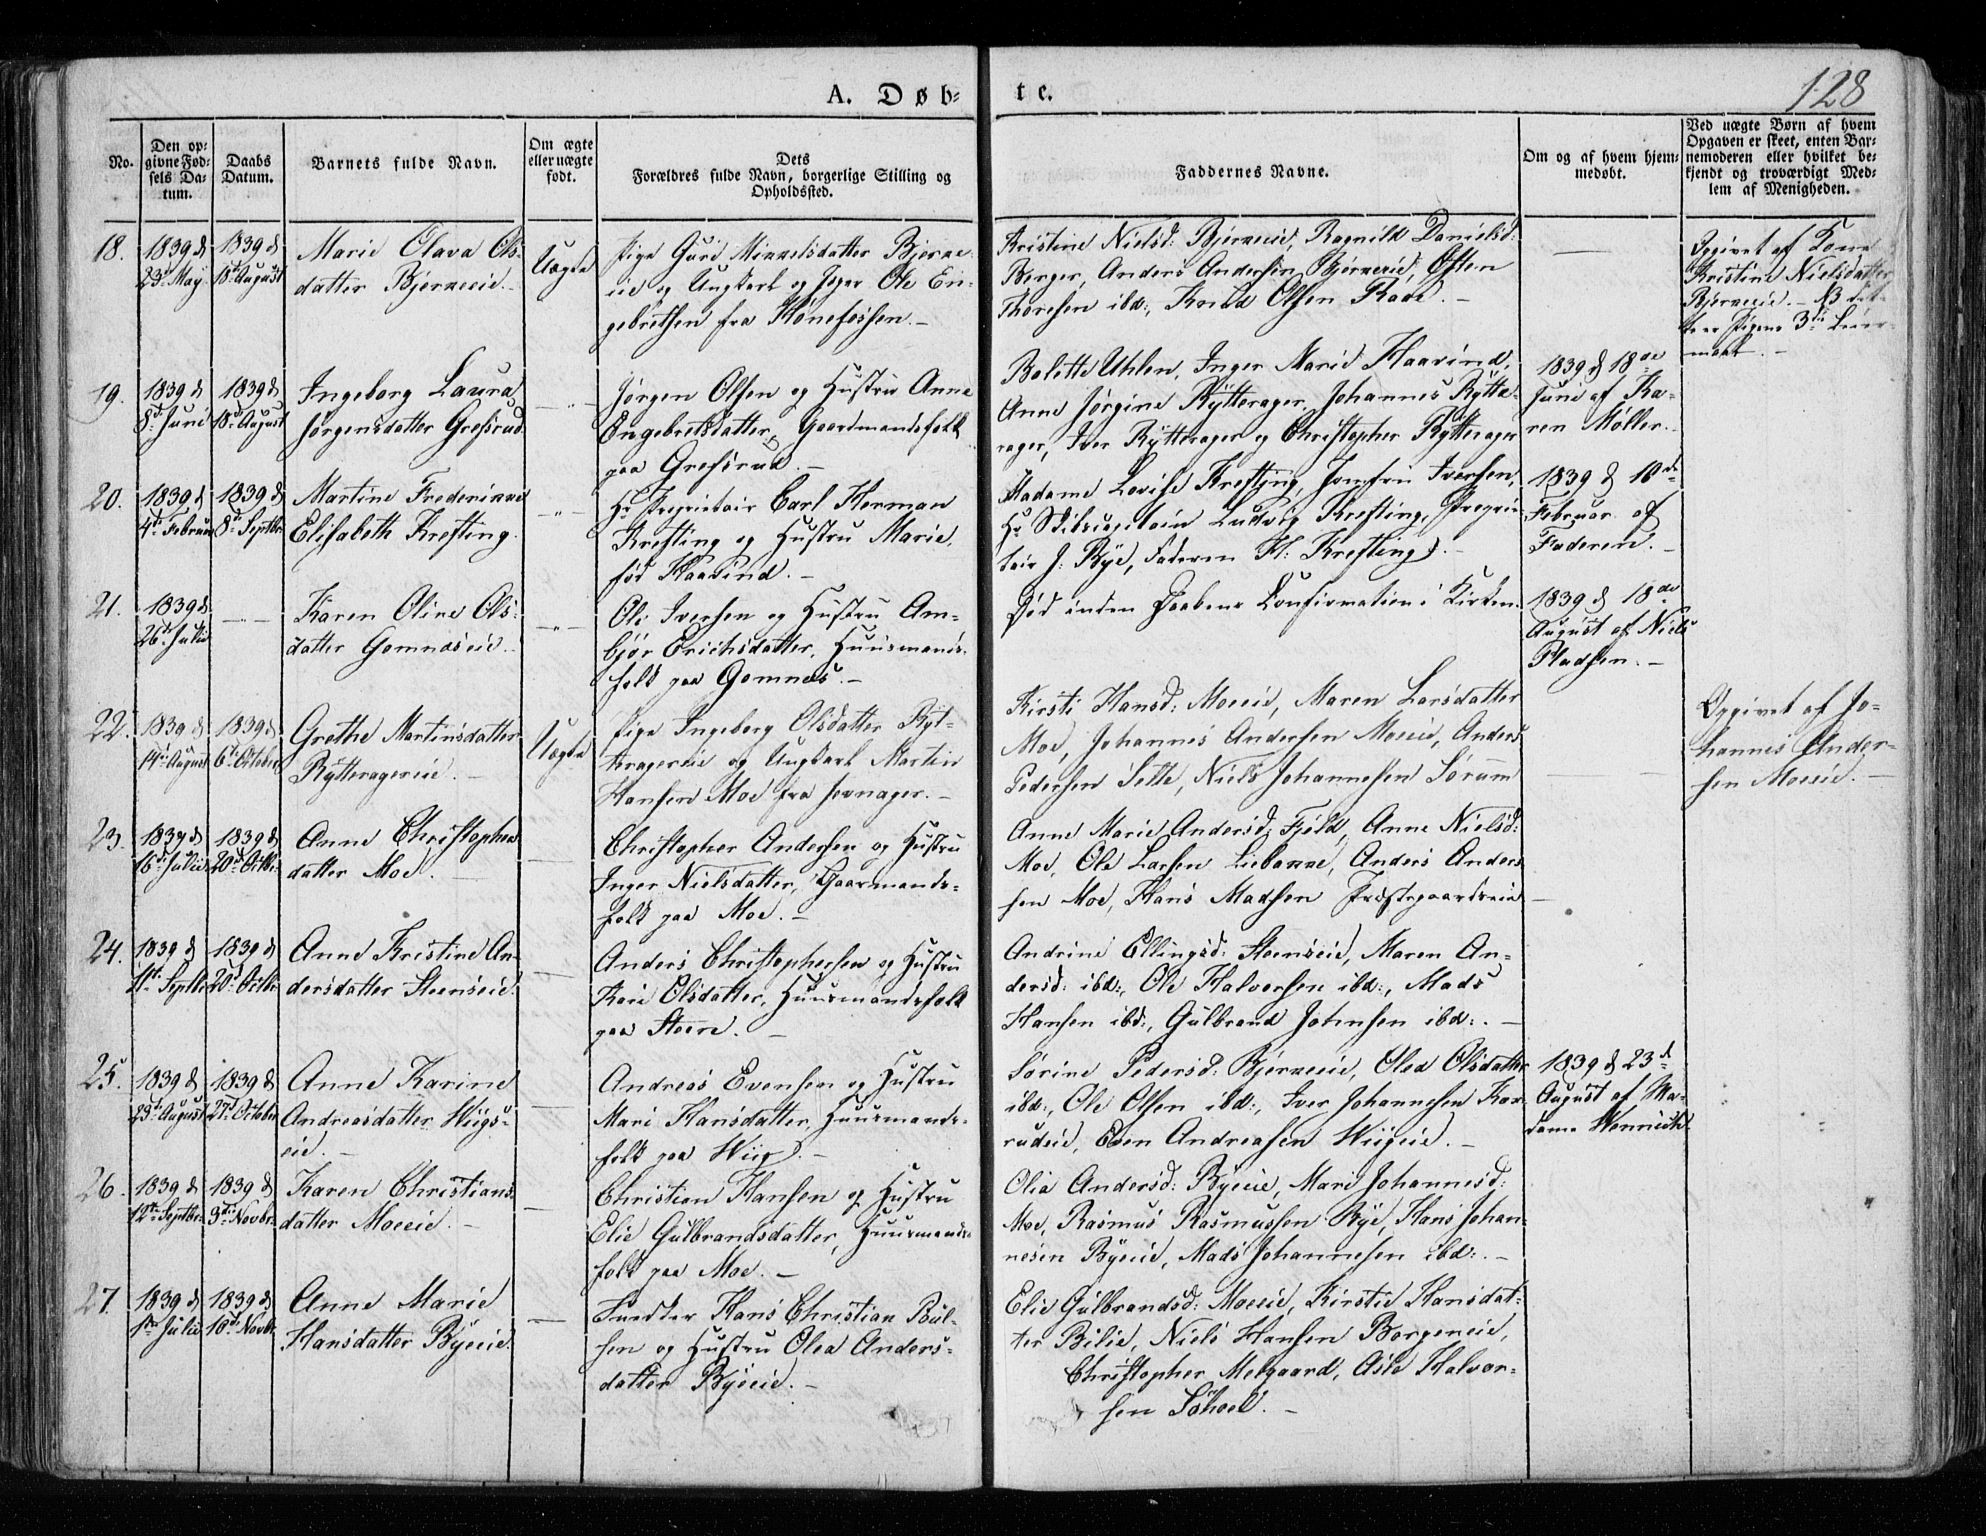 A. Døb-
te.
128
No.
Den op-
givne Fød-
sels Da-
tum.
Daabs
Datum.
Barnets fulde Navn.
Om ægte
eller uægte
født.
Dets
Forældres fulde Navn, borgerlige Stilling og
Opholdssted.
Faddernes Navne.
Om og af hvem hjem-
medøbt.
Ved uægte Børn af hvem
Opgaven er skeet, enten Bar-
nemoderen eller hvilket be-
kjendt og troværdigt Med-
lem af Menigheden.
18.
1839 d
23de May
1839 d
18de August
Marie Olava Ols-
datter Bjerkeeie.
Uægte
Pige Guri Mikkelsdatter Bjerke-
eie og Ungkarl og Jeger Ole En-
gebrethsen fra Hønefossen.
Kristine Nielsd: Bjerkeeie, Ragnild Danielsd:
Borger, Anders Andersen Bjerkeeie, Østen
Thoresen ibd:, Knud Olsen Rade.
Opgivet af Kone
Kristine Nielsdatter
Bjerkeeie. NB det-
te er Pigens 3die Leier-
maal.
19.
1839 d
8de Juni
1839 d
18de August
Ingeborg Laura
Jørgensdatter Gresrud
Jørgen Olsen og Hustru Anne
Engebretsdatter, Gaardmandsfolk
paa Gresrud.
Bolette Uhlen, Inger Marie Haavind,
Anne Jørgine Rytterager, Johannes Rytte-
rager, Iver Rytterager og Christopher Rytterager
1839 d 18de
Juni af Ka-
ren Møller.
20.
1839 d
4de Februar
1839 d
8de Septbr
Martine Frederikke
Elisabeth Krefting.
Hr Proprietair Carl Herman
Krefting og Hustru Marie,
fød Haavind.
Madame Lovise Krefting, Jomfru Iversen,
Hr Skibscapitain Ludvig Krefting, Proprie-
tair J. Bye, Faderen H: Krefting.
1839 d 10de
Februar af
Faderen.
21.
1839 d
26de Julii
Karen Oline Ols-
datter Gomnæseie.
Ole Iversen og Hustru Am-
bjør Erichsdatter, Huusmands-
folk paa Gomnæs.
Død inden Daabens Confirmation i Kirken.
1839 d 18de
August af Niels
Pladsen.
22.
1839 d
14de August
1839 d
6te October
Grethe Martinsdatter
Rytteragereie.
Uægte
Pige Ingeborg Olsdatter Ryt-
teragereie og Ungkarl Martin
Hansen Moe fra Jevnager.
Kirsti Hansd: Moeeie, Maren Larsdatter
Moe, Johannes Andersen Moeeie, Anders
Pedersen Sette, Niels Johannesen Sørum
Opgivet af Jo-
hannes Ander-
sen Moeeie.
23.
1839 d
16de Julii
1839 d
20de Octbr
Anne Christophers
datter Moe.
Christopher Andersen og Hustru
Inger Nielsdatter, Gaarmands-
folk paa Moe.
Anne Marie Andersd: Fjeld, Anne Nielsd:
Moe, Ole Larsen Liebakke, Anders Anders
sen Moe, Hans Madsen Præstgaardseie
24.
1839 d
11te Septbr
1839 d
20de Octbr
Anne Kristine An-
dersdatter Steenseie.
Anders Christophersen og Hustru
Kari Olsdatter, Huusmandsfolk
paa Steen.
Andrine Ellingsd: Steenseie, Maren An-
dersd: ibd:, Ole Halvorsen ibd:, Mads
Hansen ibd:, Gulbrand Johnsen ibd:.
25.
1839 d
23de August
1839 d
27de October
Anne Karine
Andreasdatter Wiigs-
eie.
Andreas Evensen og Hustru
Mari Hansdatter, Huusmands-
folk paa Wiig.
Sørine Pedersd: Bjerkeeie, Olea Olsdatter
ibd:, Ole Olsen ibd:, Iver Johannesen Kor-
rudeie, Even Andreasen Wiigeie.
1839 d 23de
August af Ma-
dame
26.
1839 d
12te Septbr
1839 d
3die Novbr
Karen Christians-
datter Moeeie.
Christian Hansen og Hustru
Elie Gulbrandsdatter, Huusmands-
folk paa Moe.
Olia Andersd: Byeeie, Mari Johannesd:
Moe, Rasmus Rasmussen Bye, Hans Johan-
nesen Byeeie, Mads Johannesen ibd:.
27.
1839 d
1ste Julii
1839 d
10de Novbr
Anne Marie
Hansdatter Byeeie.
Hans Christian Poul-
sen og Hustru Olea Anders-
datter Byeeie.
Elie Gulbrandsd: Moeeie, Kirstie Hansdat-
ter Bilie, Niels Hansen Borgeneie,
Christopher Melgaard, Asle Halvor-
sen Søhoel.